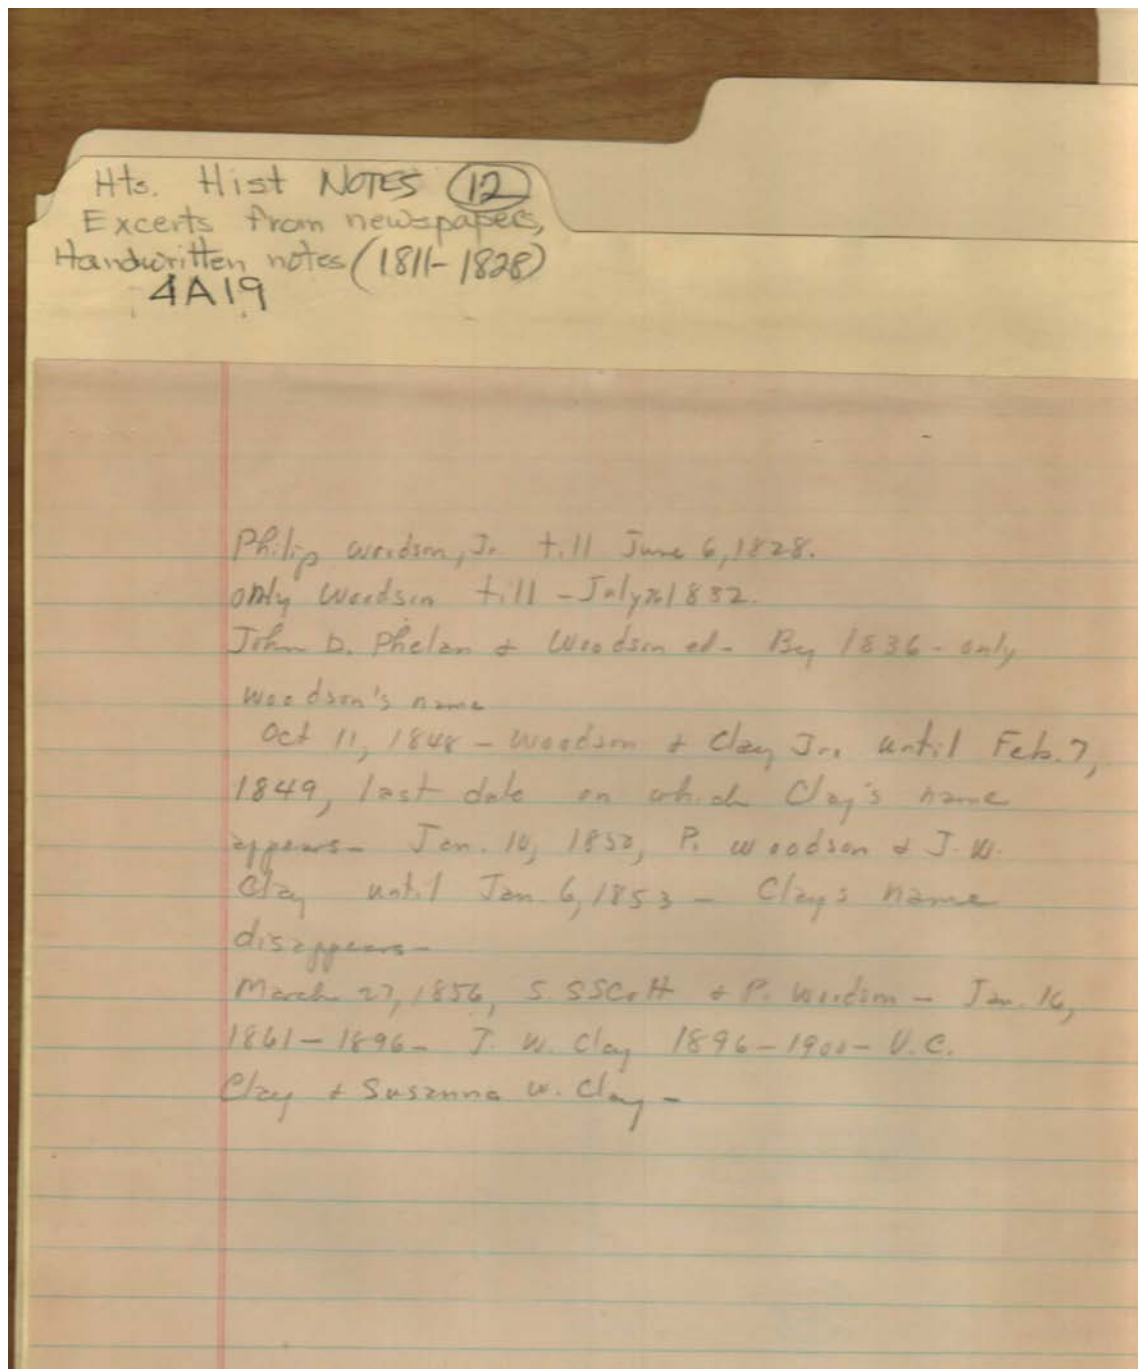 Hts. Hist NOTES 12
Excerts from newspapers,
Handwritten notes (1811-1828)
4A19
Philip Woodson, Jr. till June 6, 1828.
only Woodson till - July 1832.
John D. Phelan & Woodson ed - Beg 1836 - only
Woodson's name
Oct 11, 1848 - Woodson & Clay Jr. until Feb. 7,
1849, last date on which Clay's name
appears - Jan. 10, 1850, P. Woodson & J. W.
Clay until Jan. 6, 1853 - Clay's name
disappears -
March 27, 1856, S. S Scott & P. Woodson - Jan. 16,
1861 - 1896 - J. W. Clay 1896 - 1900 - V. C.
Clay & Susanna W. Clay -